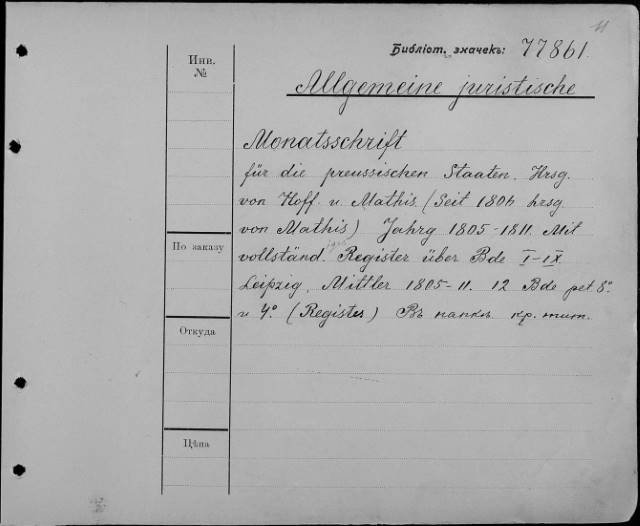 11
Библіот. значекъ: 77861.
Инв.
№
Allgemeine juristische
Monatsschrift
für die preussischen Staaten. Hrsg.
von Hoff u. Mathis. (Seit 1806 hrsg.
von Mathis) Jahrg 1805-1811. Mit
По заказу
vollständ. Register über Bde I-IX.
Leipzig, Mittler 1805-11. 12 Bde pet. 8°.
u 4°. (Register) Въ папкѣ. кр. тит.
Откуда
Цѣна